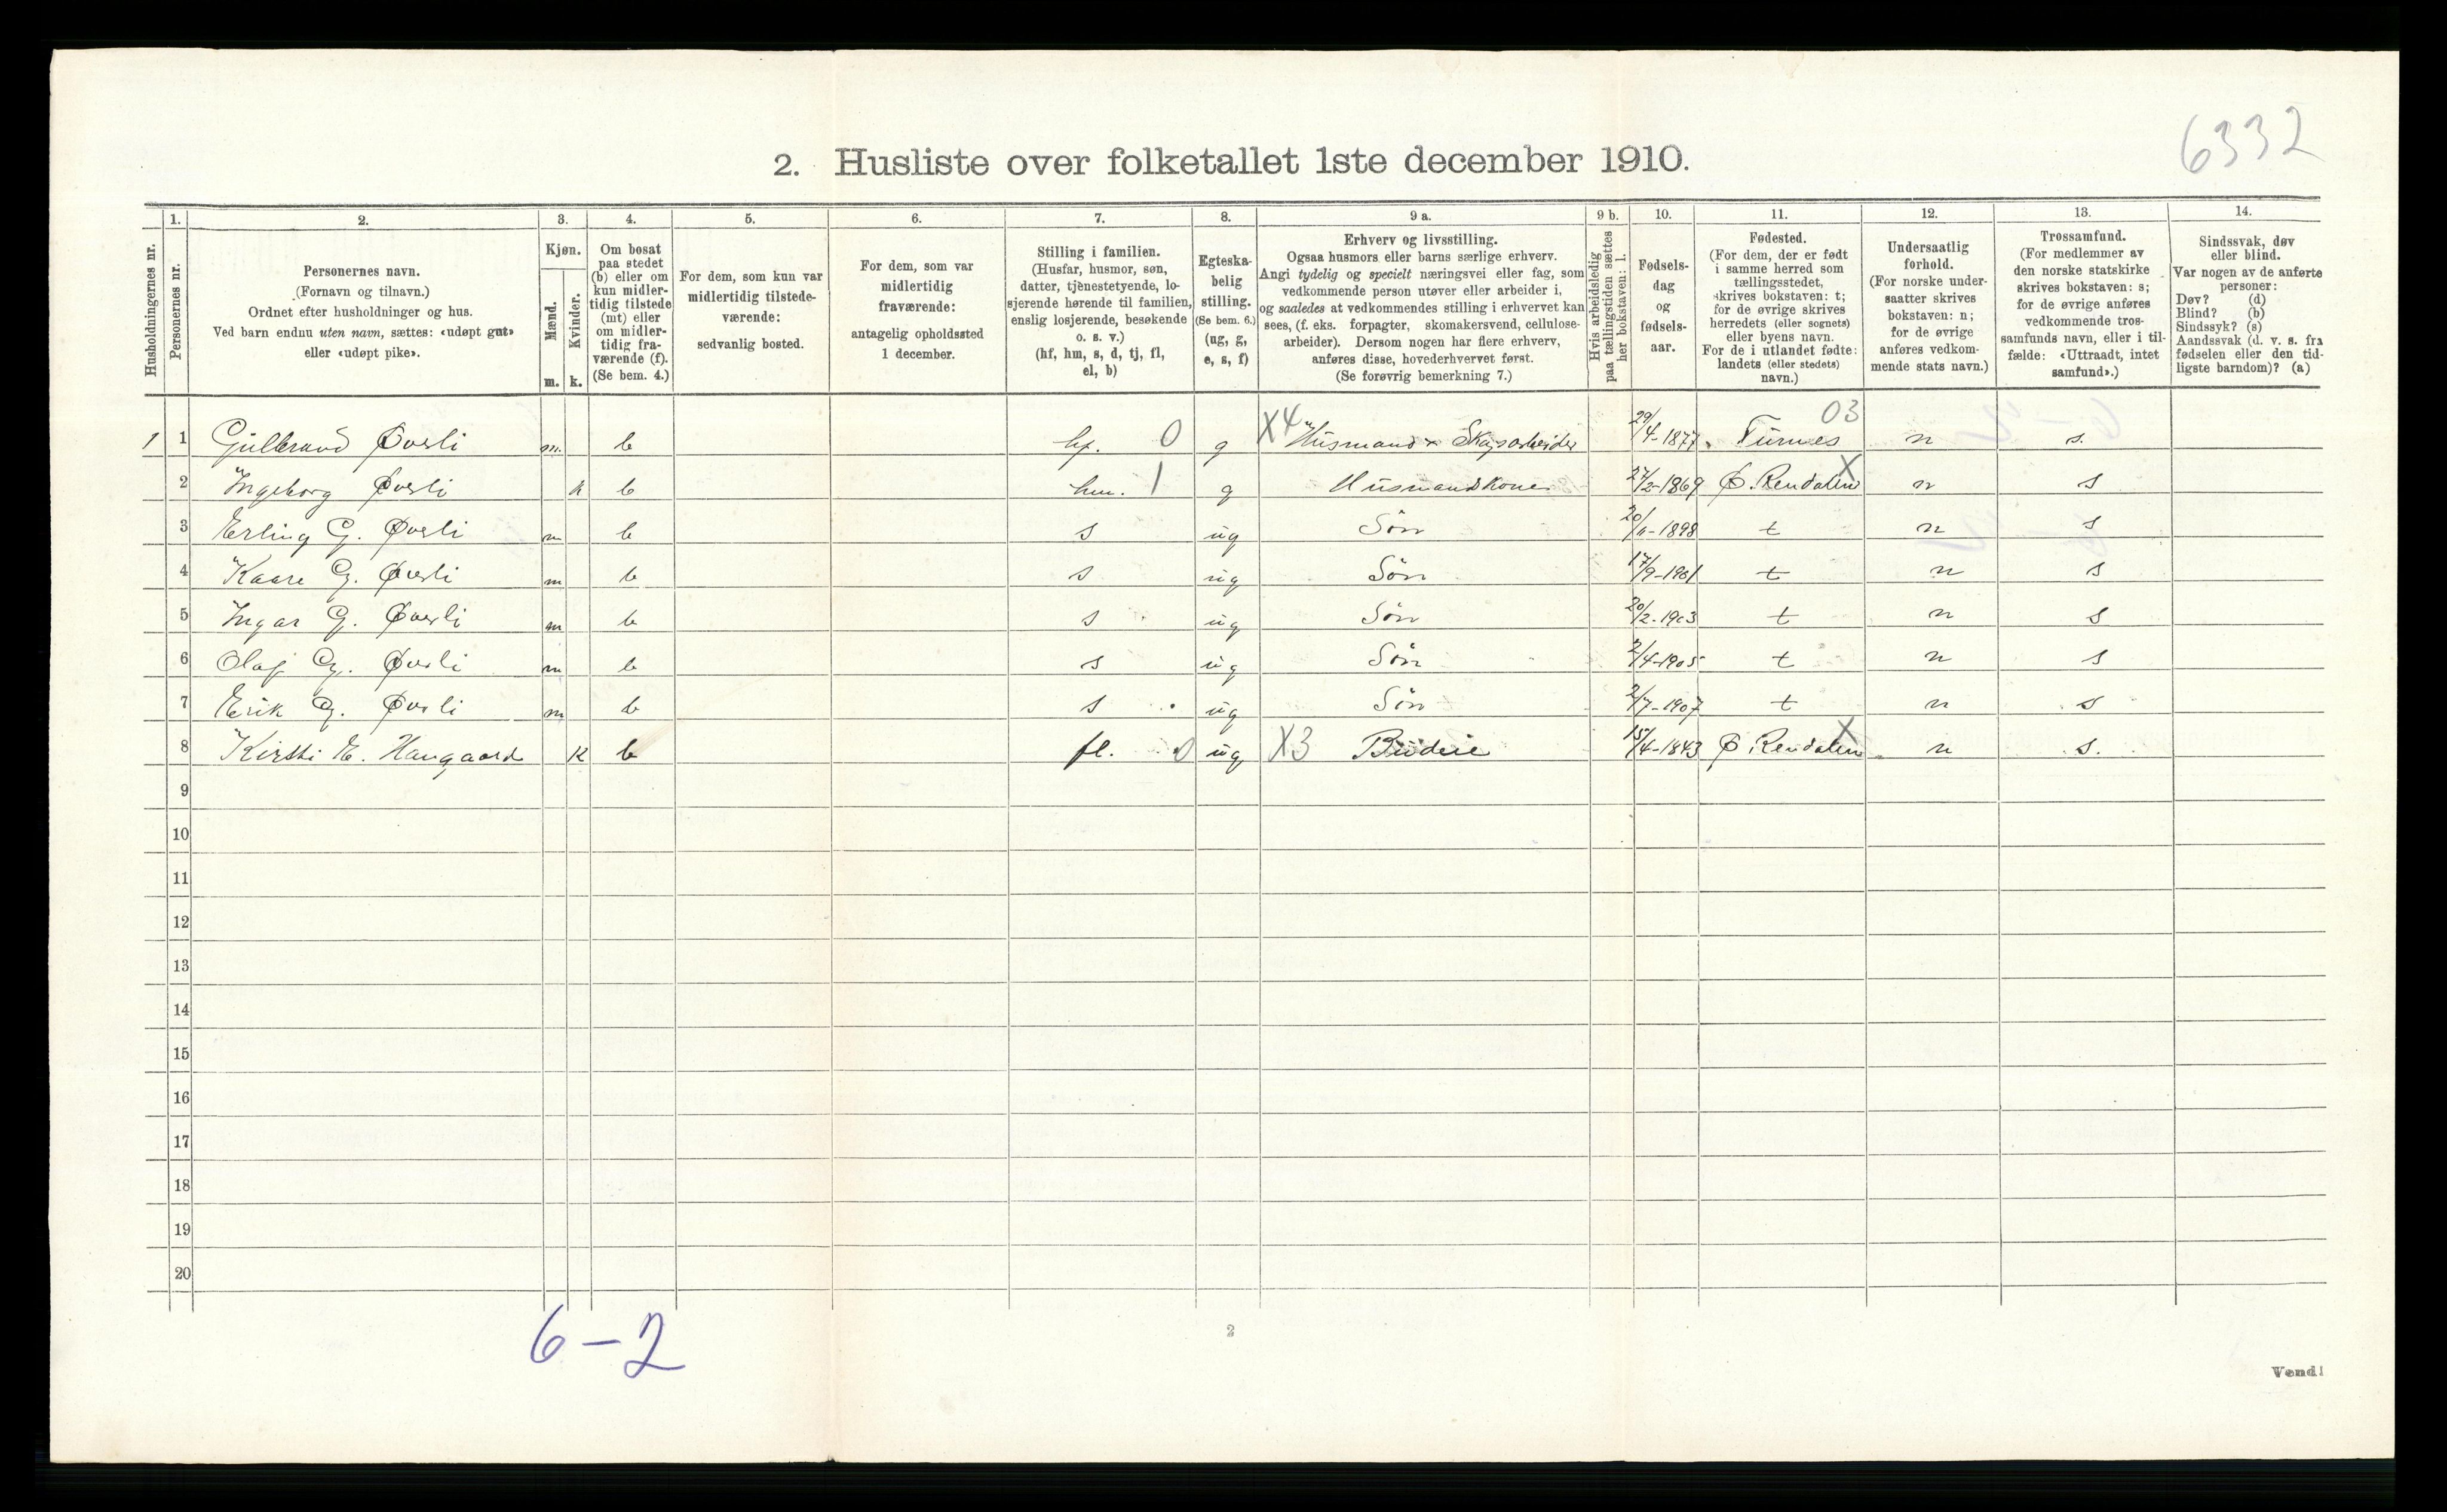 6332
2. Husliste over folketallet 1ste december 1910.
Husholdningernes nr.
1.
Personernes nr.
2.
Personernes navn.
(Fornavn og tilnavn.)
Ordnet efter husholdninger og hus.
Ved barn endnu uten navn, sættes: «udøpt gut»
eller «udøpt pike».
3.
Kjøn.
Mænd.
Kvinder.
m. k.
4.
Om bosat
paa stedet
(b) eller om
kun midler-
tidig tilstede
(mt) eller
om midler-
tidig fra-
værende (f).
(Se bem. 4.)
5.
For dem, som kun var
midlertidig tilstede-
værende:
sedvanlig bosted.
6.
For dem, som var
midlertidig
fraværende:
antagelig opholdssted
1 december.
7.
Stilling i familien.
(Husfar, husmor, søn,
datter, tjenestetyende, lo-
sjerende hørende til familien,
enslig losjerende, besøkende
o. s. v.)
(hf, hm, s, d, tj, fl,
el, b)
8.
Egteska-
belig
stilling.
(Se bem. 6.)
(ug, g,
e, s, f)
9 a.
Erhverv og livsstilling.
Ogsaa husmors eller barns særlige erhverv.
Angi tydelig og specielt næringsvei eller fag, som
vedkommende person utøver eller arbeider i,
og saaledes at vedkommendes stilling i erhvervet kan
sees, (f. eks. forpagter, skomakersvend, cellulose-
arbeider). Dersom nogen har flere erhverv,
anføres disse, hovederhvervet først.
(Se forøvrig bemerkning 7.)
9 b.
Hvis arbeidsledig
paa tællingstiden sættes
her bokstaven: l.
10.
Fødsels-
dag
og
fødsels-
aar.
11.
Fødested.
(For dem, der er født
i samme herred som
tællingsstedet,
skrives bokstaven: t;
for de øvrige skrives
herredets (eller sognets)
eller byens navn.
For de i utlandet fødte:
landets (eller stedets)
navn.)
12.
Undersaatlig
forhold.
(For norske under-
saatter skrives
bokstaven: n;
for de øvrige
anføres vedkom-
mende stats navn.)
13.
Trossamfund.
(For medlemmer av
den norske statskirke
skrives bokstaven: s;
for de øvrige anføres
vedkommende tros-
samfunds navn, eller i til-
fælde: «Uttraadt, intet
samfund».)
14.
Sindssvak, døv
eller blind.
Var nogen av de anførte
personer:
Døv? (d)
Blind? (b)
Sindssyk? (s)
Aandssvak (d. v. s. fra
fødselen eller den tid-
ligste barndom)? (a)
03
1 1 Gulbrand Øverli m. b hf. 0 g X4 Husmand & Skogarbeider 29/4-1877 n s.
2 Ingeborg Øverli k b hm. 1 g Husmandskone 27/2-1869 Ø. Rendalen X n s
3 Erling G. Øverli m b s ug Søn 20/11-1898 t n s
4 Kaare G. Øverli m b s ug Søn 17/9-1901 t n s
5 Ingar G. Øverli m b s ug Søn 20/2-1903 t n s
6 Olaf G. Øverli m b s ug Søn 2/4-1905 t n s
7 Erik G. Øverli m b s ug Søn 2/7-1907 t n s
8 Kirsti E. Haugaard k b fl. 0 ug X3 Budeie 15/4-1843 Ø. Rendalen X n s.
9
10
11
12
13
14
15
16
17
18
19
20
6-2
2
Vend!